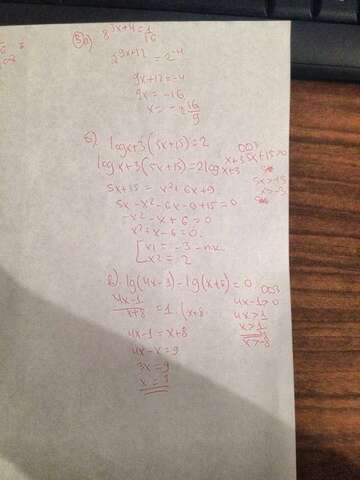 3) a) 8^(3x+4) = 1/16
2^(9x+12) = 2^(-4)
9x+12 = -4
9x = -16
x = -16/9
б) log x+3 (5x+15) = 2
ОДЗ
log x+3 (5x+15) = 2 log x+3
5x+15>0
5x>-15
x>-3
5x+15 = x²+6x+9
5x-x²-6x-9+15=0
-x²-x+6=0
x²+x-6=0.
x1 = -3 -
x2 = 2
в) lg(4x-1)-lg(x+8)=0
ОДЗ
(4x-1)/(x+8) = 1 · (x+8
4x-1>0
4x>1
x>-8
4x-1 = x+8
4x-x=9
3x=9
x=3